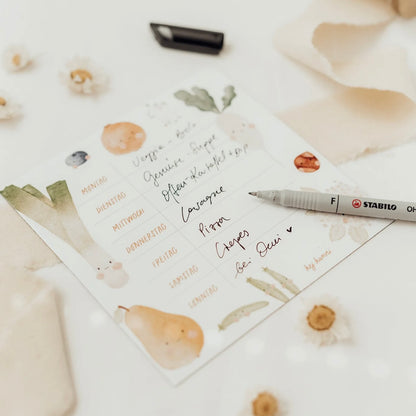 MONTAG Veggie-Bowl
DIENSTAG Gemüse-Suppe
MITTWOCH Ofen-Kartoffel + Dip
DONNERSTAG Lasagne
FREITAG Pizza
SAMSTAG Crêpes
SONNTAG bei Omi ♥
F STABILO OH